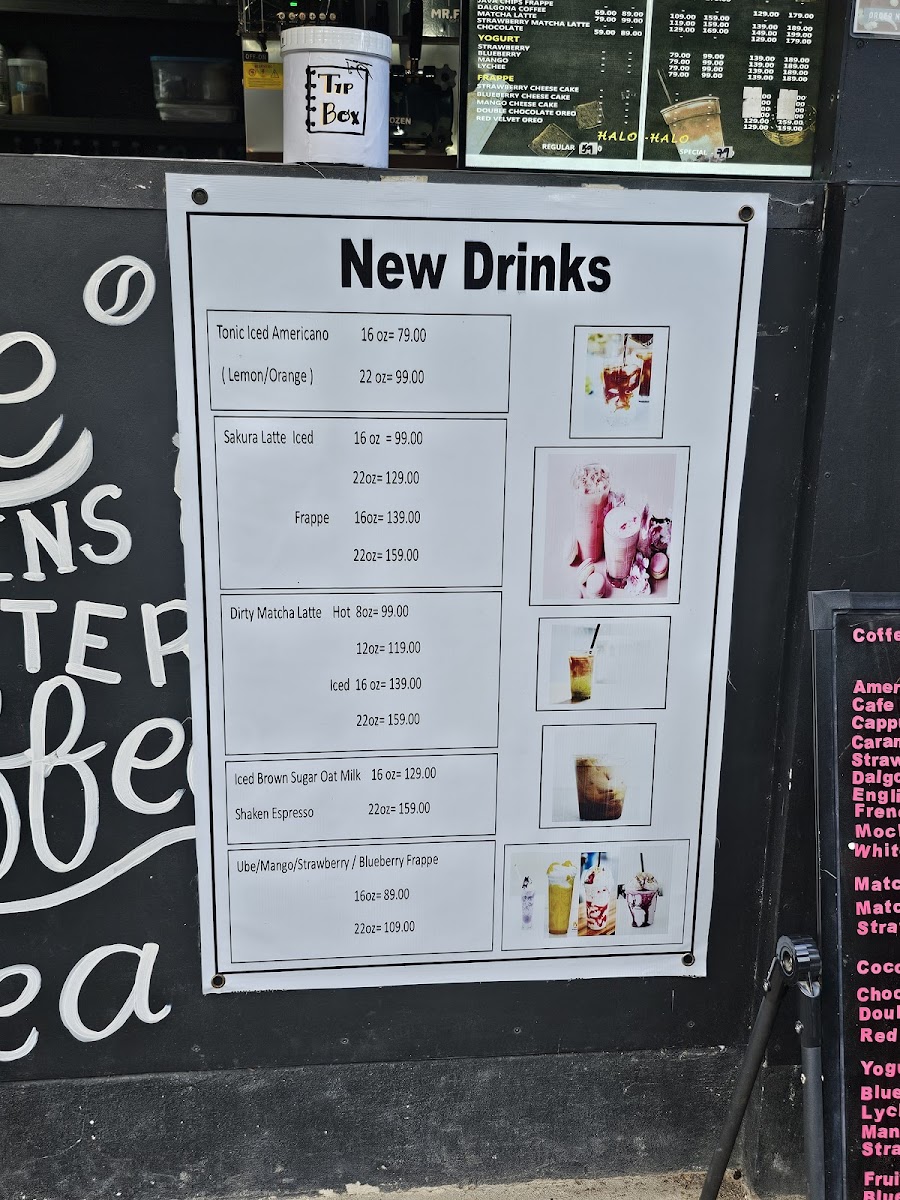 MR.F
OFF-ON
OZEN
Tip
Box
JAVA CHIPS FRAPPE
DALGONA COFFEE
MATCHA LATTE 69.00 89.00 109.00 159.00 129.00 179.00
STRAWBERRY MATCHA LATTE 79.00 99.00 119.00 159.00 149.00 199.00
CHOCOLATE 59.00 89.00 129.00 169.00 129.00 179.00
YOGURT
STRAWBERRY 79.00 99.00 139.00 189.00
BLUEBERRY 79.00 99.00 139.00 189.00
MANGO 79.00 99.00 139.00 189.00
LYCHEE 79.00 99.00 139.00 189.00
FRAPPE
STRAWBERRY CHEESE CAKE
BLUEBERRY CHEESE CAKE
MANGO CHEESE CAKE
DOUBLE CHOCOLATE OREO
RED VELVET OREO 129.00 159.00
HALO-HALO
REGULAR
SPECIAL
New Drinks
Tonic Iced Americano 16 oz= 79.00
( Lemon/Orange ) 22 oz= 99.00
Sakura Latte Iced 16 oz = 99.00
22oz= 129.00
Frappe 16oz= 139.00
22oz= 159.00
Dirty Matcha Latte Hot 8oz= 99.00
12oz= 119.00
Iced 16 oz= 139.00
22oz= 159.00
Iced Brown Sugar Oat Milk 16 oz= 129.00
Shaken Espresso 22oz= 159.00
Ube/Mango/Strawberry / Blueberry Frappe
16oz= 89.00
22oz= 109.00
e
INS
TTER
ffee
ea
Coffe
Amer
Cafe
Cappu
Caram
Straw
Dalgo
Engli
Frenc
Moch
White
Matc
Matc
Stra
Coco
Choc
Doub
Red
Yogu
Blue
Lych
Man
Stra
Frui
Blue